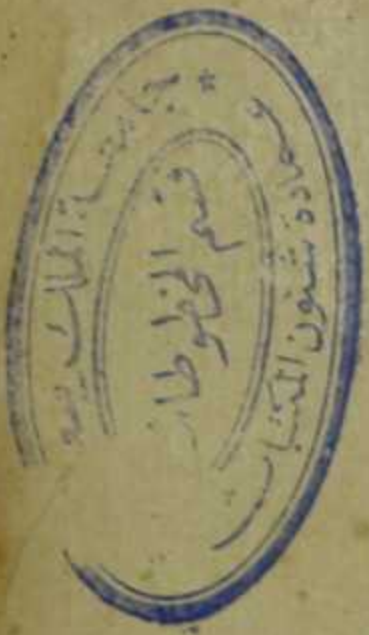 جامعة الملك سعو
قسم المخطوطا
عمادة شئون المكتبات